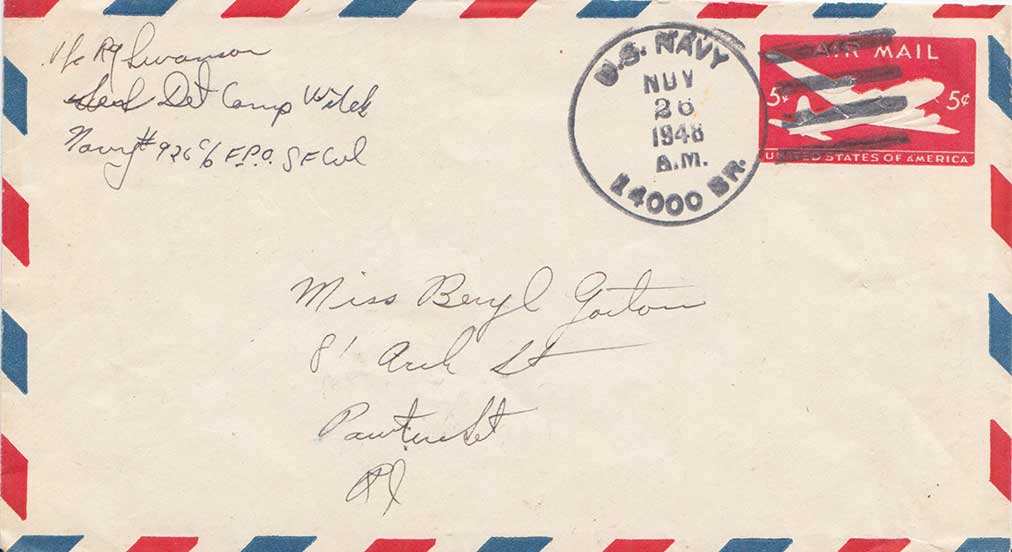 Pfc RJ Swanson
Det Camp Witek
Navy # 926 c/o F.P.O. SF Cal
U.S. NAVY
NOV
26
1948
A.M.
14000 BR.
AIR MAIL
5¢ 5¢
UNITED STATES OF AMERICA
Miss Beryl Gorton
81 Arch St
Pawtucket
RI